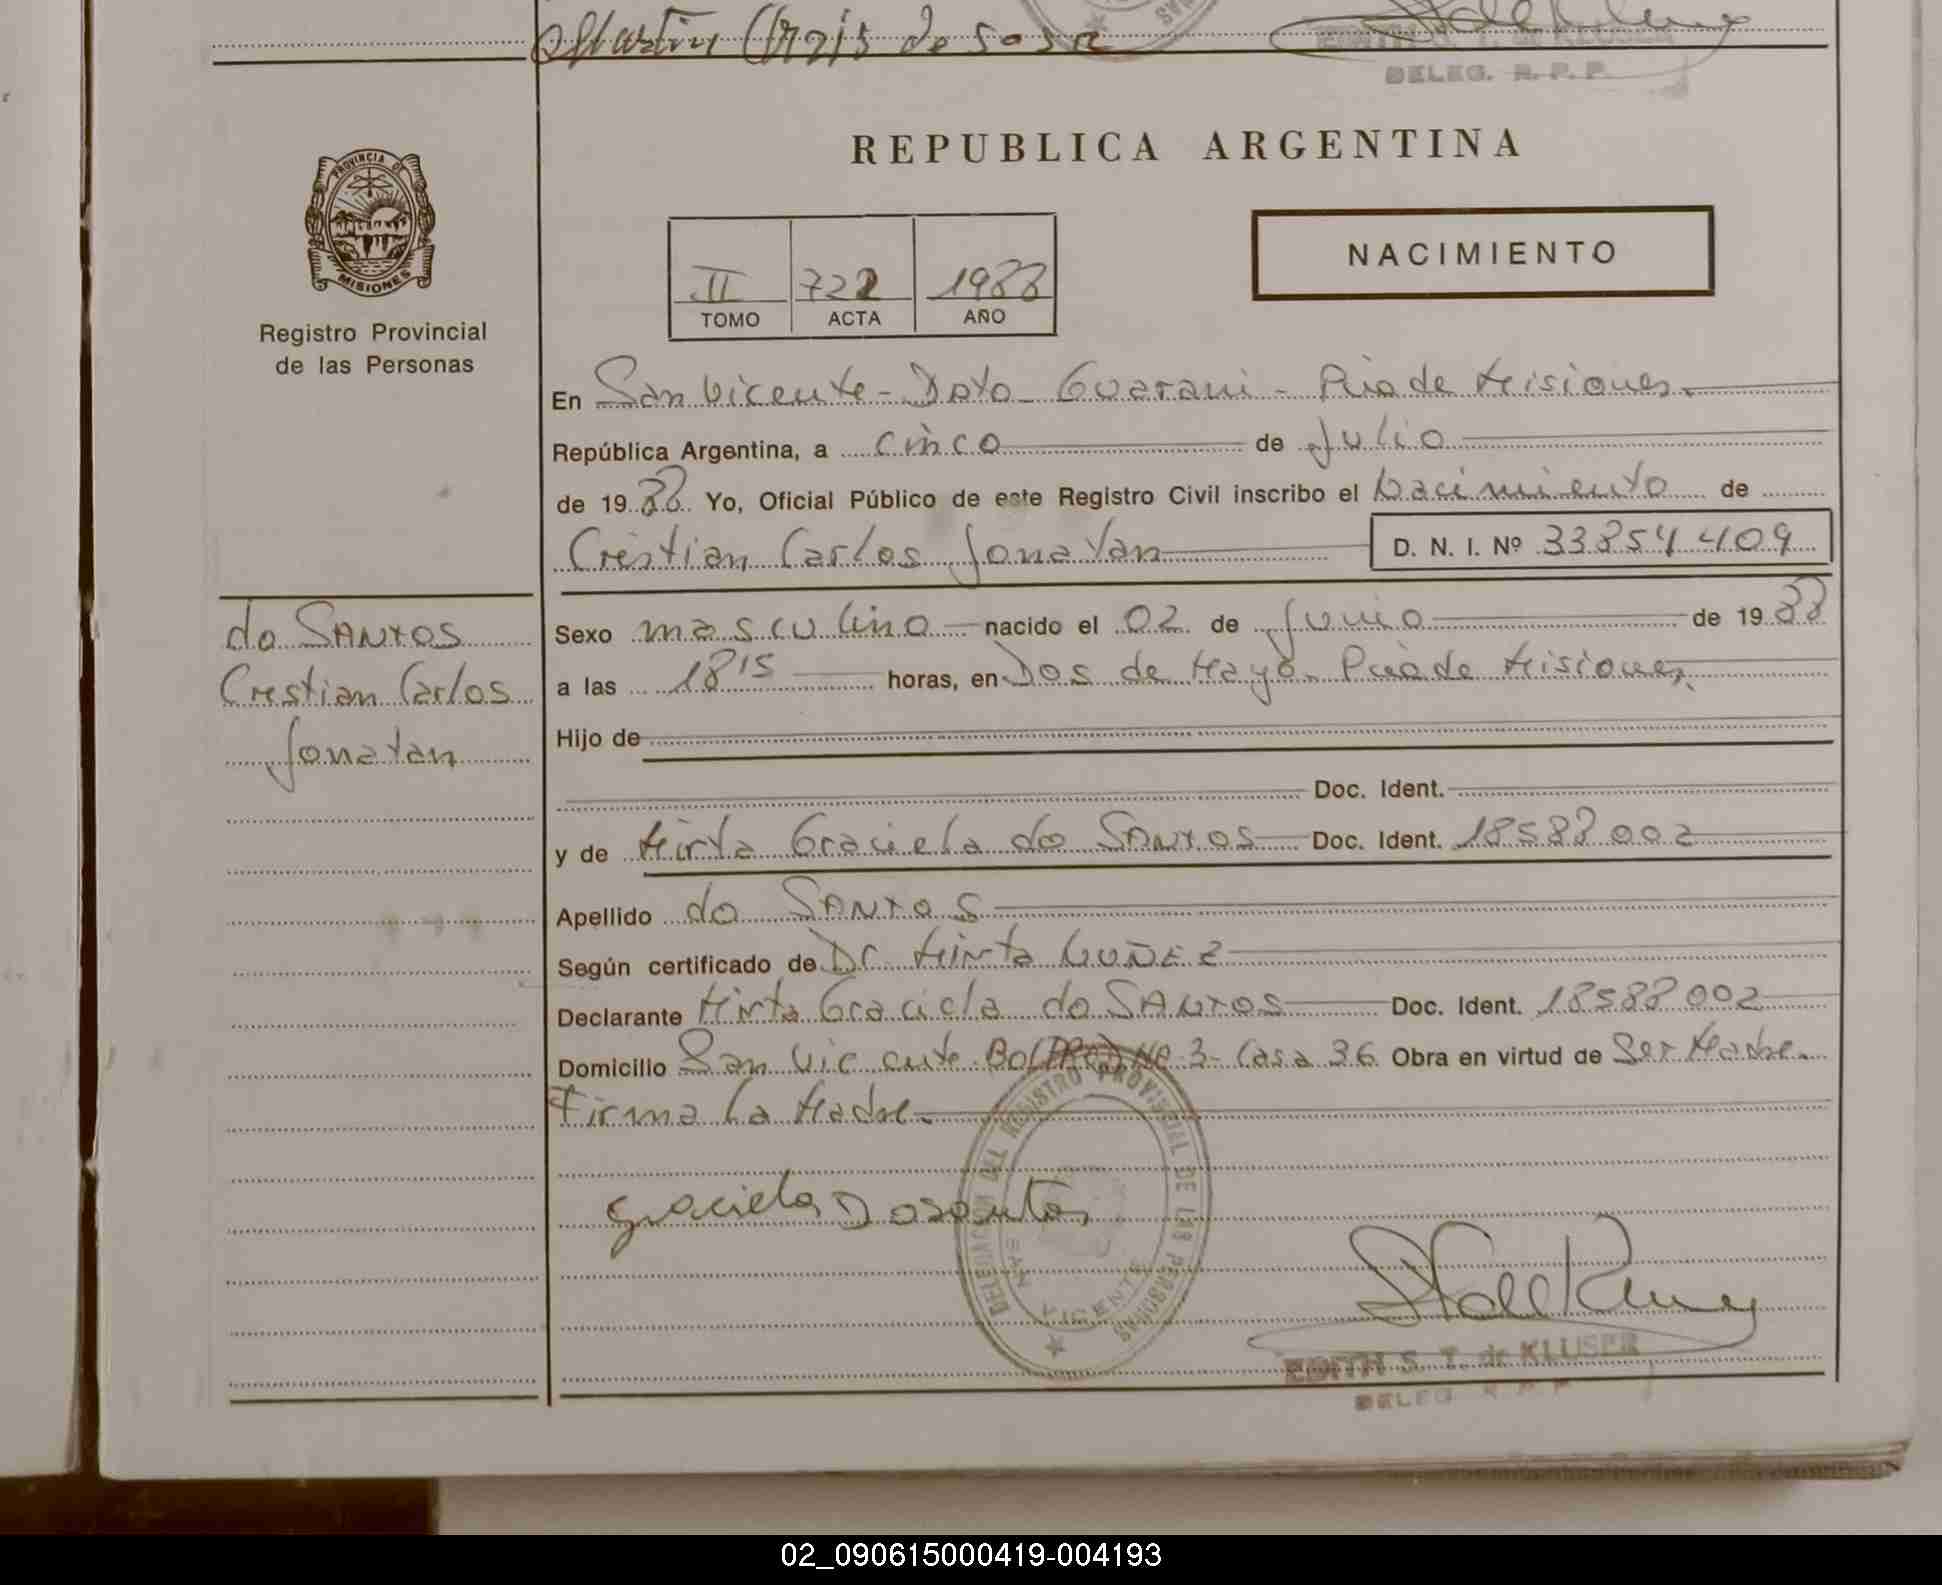 Martin Clrais de Sosa
EDITH S. T. de KLUSER
DELEG. R. P. P.
PROVINCIA DE
MISIONES
Registro Provincial
de las Personas
REPUBLICA ARGENTINA
NACIMIENTO
II 722 1988
TOMO ACTA AÑO
En San Vicente - Dpto Guarani - Pcia de Misiones.
República Argentina, a cinco de Julio
de 1988 Yo, Oficial Público de este Registro Civil inscribo el Nacimiento de
Crestian Carlos Jonatan D. N. I. Nº 33854409
do SANTOS
Crestian Carlos
Jonatan
Sexo masculino nacido el 02 de Junio de 1988
a las 18'15 horas, en Dos de Mayo. Pcia de Misiones.
Hijo de
Doc. Ident.
y de Mirta Graciela do SANTOS Doc. Ident. 18588.002
Apellido do SANTOS
Según certificado de Dr Mirta NUÑEZ
Declarante Mirta Graciela do SANTOS Doc. Ident. 18588.002
Domicilio San Vicente Nº 3- Casa 36 Obra en virtud de Ser Madre.
Firma la Madre.
graciela Dosantos
DELEGACION DEL REGISTRO PROVINCIAL DE LAS PERSONAS
SAN VICENTE
EDITH S. T. de KLUSER
DELEG. R. P. P.
02_090615000419-004193